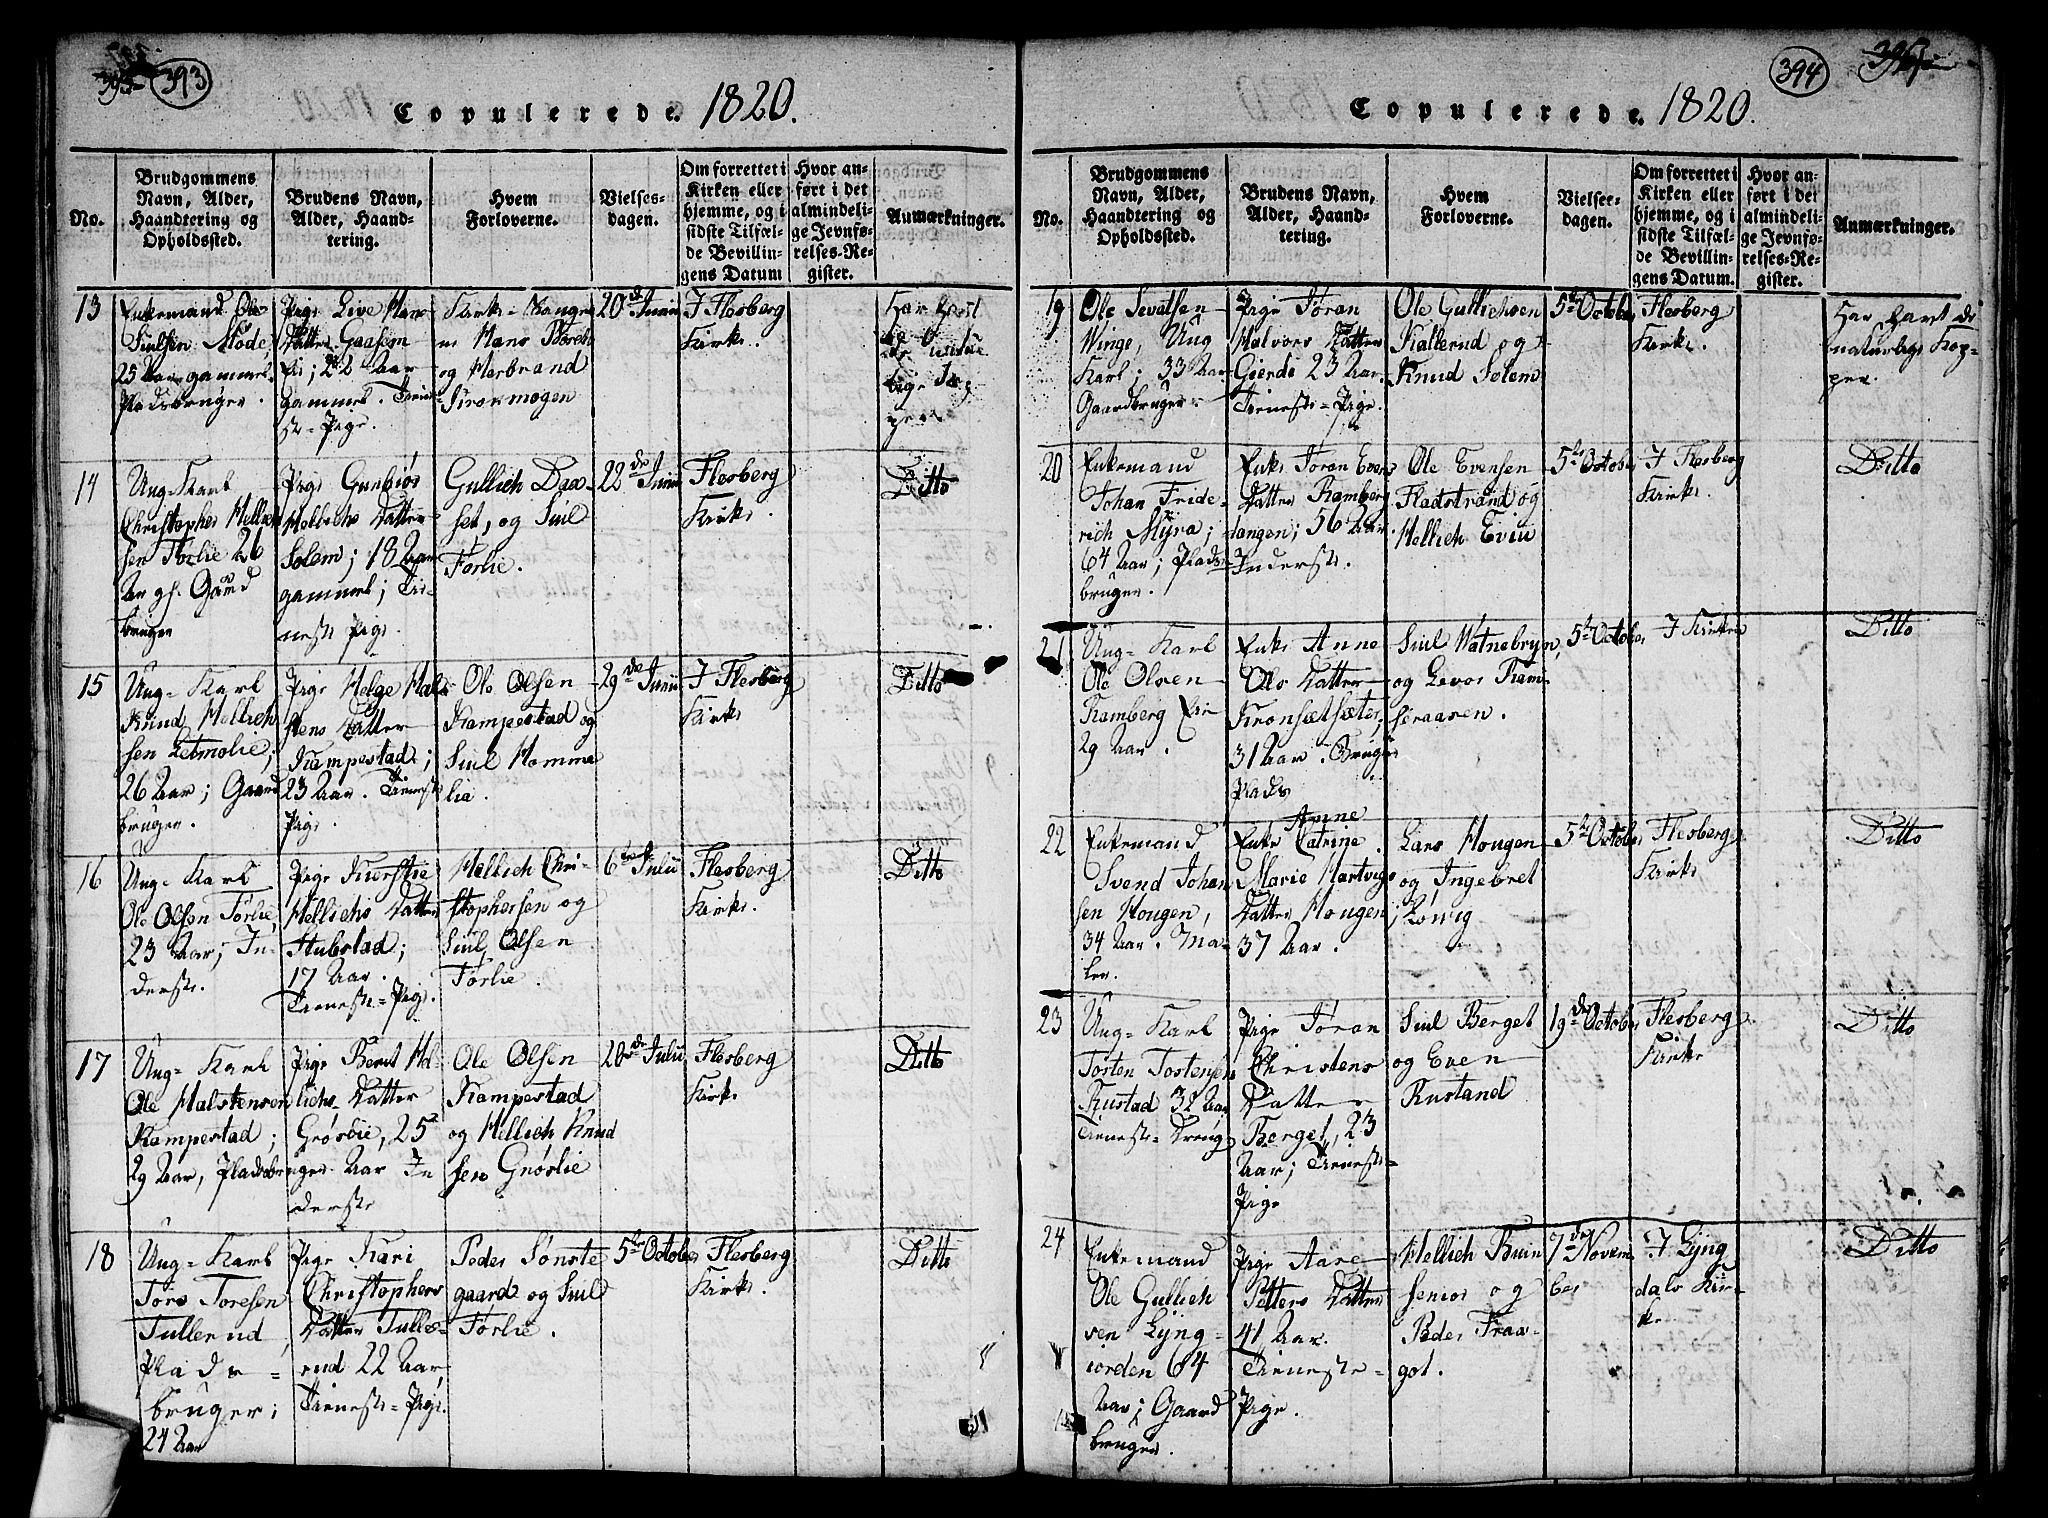 393
Copulerede. 1820.
No.
Brudgommens
Navn, Alder,
Haandtering og
Opholdssted.
Brudens Navn,
Alder, Haand-
tering.
Hvem
Forloverne.
Vielses-
dagen.
Om forrettet i
Kirken eller
hjemme, og i
sidste Tilfæl-
de Bevillin-
gens Datum
Hvor an-
ført i det
almindeli-
ge Jevnfø-
relses-Re-
gister.
Anmærkninger.
13
Enkemand Ole
Siulsen Mode,
25 Aar gammel.
Pladsbruger.
Pige Live Hans
Datter Gaasem
; 22 Aar
gammel. Tiene-
ste-Pige.
Kirke-Sanger
Hans Bereh
og Herbrand
Strømogen
20de Junii
I Flesberg
Kirke.
Har havt
de
14
Ung-Karl
Christopher Hellich
sen Førlie 26
Aar gl. Gaard
bruger
Pige Gunbiør
Hellichs Datter
Solem; 18 Aar
gammel; Tie-
neste Pige.
Gullich Daa-
set, og Siul
Førlie.
22de Junii
Flesberg
Kirke.
Ditto
15
Ung-Karl
Knud Hellich
sen Letmolie;
26 Aar; Gaard
bruger.
Pige Helge Hal-
stens Datter
Kampestad;
23 Aar. Tieneste
Pige.
Ole Olsen
Kampestad og
Siul Homme
lia.
29de Junii
I Flesberg
Kirke
Ditto
16
Ung-Karl
Ole Olsen Førlie,
23 Aar; In-
derste.
Pige Kierstie
Hellichs Datter
Stubstad;
17 Aar.
Tieneste-Pige.
Hellich Chri-
stophersen og
Siul Olsen
Førlie.
6te Julii
Flesberg
Kirke.
Ditto
17
Ung-Karl
Ole Halstensen
Kampestad;
29 Aar, Pladsbruger.
Pige Berit Hel-
lichs Datter
Grøslie, 25
Aar In
derste
Ole Olsen
Kampestad
og Hellich Knud
sen Grøslie
20de Julii
Flesberg
Kirke
Ditto
18
Ung-Karl
Tore Toresen
Tullerud
Plads-
bruger;
24 Aar
Pige Kari
Christophers
Datter Tulle-
rud 22 Aar,
Tieneste-Pige.
Peder Sønste
gaard og Siul
Førlie.
5te October
Flesberg
Kirke.
Ditto
394
Copulerede. 1820.
No.
Brudgommens
Navn, Alder,
Haandtering og
Opholdssted.
Brudens Navn,
Alder, Haand-
tering.
Hvem
Forloverne.
Vielses-
dagen.
Om forrettet i
Kirken eller
hjemme, og i
sidste Tilfæl-
de Bevillin-
gens Datum.
Hvor an-
ført i det
almindeli-
ge Jevnfø-
relses-Re-
gister.
Anmærkninger.
19
Ole Sevatsen
Winge, Ung
Karl; 33 Aar
Gaardbruger.
Pige Jøran
Halvors Datter
Gierde 23 Aar.
Tieneste-Pige.
Ole Gullichsen
Kallerud og
Knud Solem
5te October
Flesberg
Kirke.
Har havt de
naturlige Kop-
per.
20
Enkemand
Johan Fride-
rich Myra;
64 Aar; Plads-
bruger.
Enke Jøran Evens
Datter Ramberg
tangen; 56 Aar.
Inderste.
Ole Evensen
Fladstrand og
Hellich Eviu
5te October
I Flesberg
Kirke.
Ditto
21
Ung-Karl
Ole Olsen
Ramberg Eie
29 Aar.
Enke Anne
Ols Datter
Kronsætsæter,
31 Aar. Bruger
Plads
Siul Watnebryn,
og Levor Ram-
seraasen.
5te October
I Kirken
Ditto
22
Enkemand
Svend Johan
sen Hougen,
34 Aar. Ma-
ler.
Anne
Enke Catrine
Marie Hartvigs
Datter Hougen;
37 Aar.
Lars Hougen
og Ingebret
Løvig
5te October
Flesberg
Kirke
Ditto
23
Ung-Karl
Torsten Torstensen
Rustad 32 Aar
Tieneste-Dreng
Pige Jøran
Christens
Datter
Berget, 23
Aar; Tieneste-
Pige
Siul Berget
og Even
Rustand
19de October
Flesberg
Kirke
Ditto
24
Enkemand
Ole Gullich
sen Lyng-
iorden 64
Aar; Gaard
bruger.
Pige Aase
Petters Datter
41 Aar.
Tieneste-
Pige.
Hellich Buin
senior og
Peder Fraa-
got.
7de Novem
ber
I Lyng
dals Kir-
ke.
Ditto